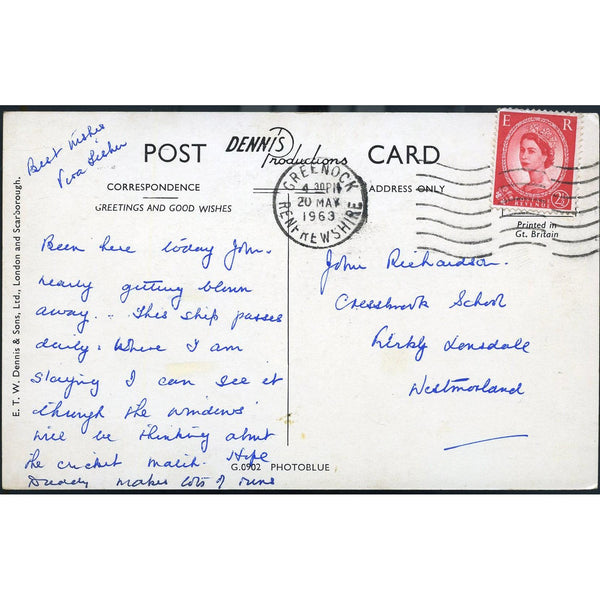 Best wishes
POST
DENNIS
Productions
CARD
CORRESPONDENCE
ADDRESS ONLY
GREETINGS AND GOOD WISHES
GREENOCK
4 30PM
20 MAY
1963
RENFREWSHIRE
E R
2½
Printed in
Gt. Britain
E. T. W. Dennis & Sons, Ltd., London and Scarborough.
Been here today John.
nearly getting blown
away.. This ship passes
daily. Where I am
staying I can see it
through the windows
will be thinking about
the cricket match. Hope
Daddy makes lots of runs
John Richardson.
Cressbrook School
Kirkby Lonsdale
Westmorland
G.0902 PHOTOBLUE